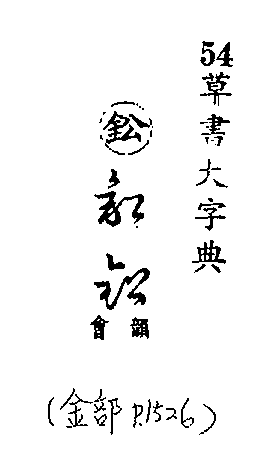 54草書大字典
鈆
韻會
(金部 P.1526)